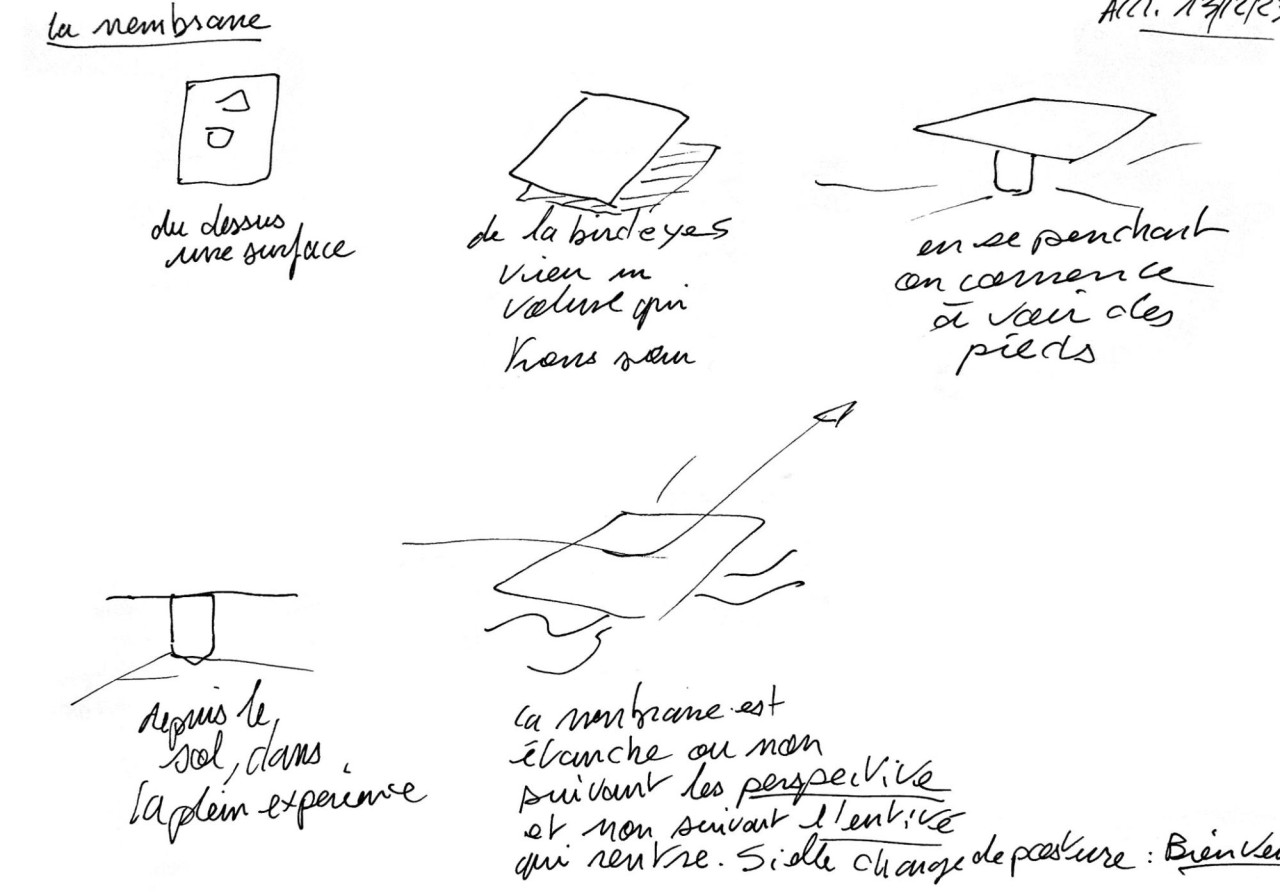 la membrane
13/2/23
du dessus
une surface
de la bird eyes
view un
volume qui
en se penchant
on commence
à voir des
pieds
depuis le
sol, dans
la plein expérience
la membrane est
étanche ou non
suivant les perspective
et non suivant l'entité
qui rentre. Si elle change de posture : Bienven